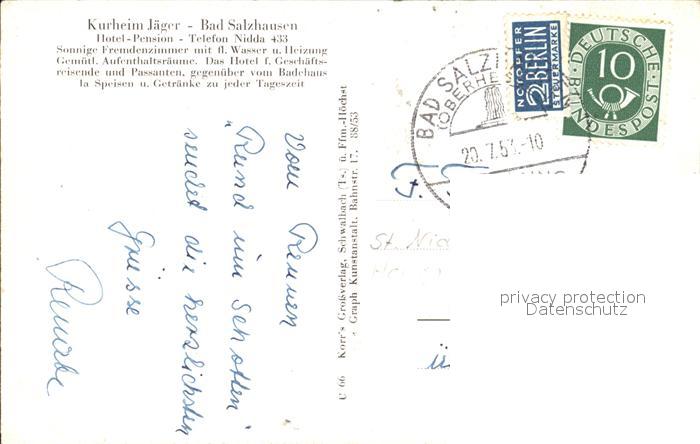 Kurheim Jäger - Bad Salzhausen
Hotel-Pension - Telefon Nidda 433
Sonnige Fremdenzimmer mit fl. Wasser u. Heizung
Gemütl. Aufenthaltsräume. Das Hotel f. Geschäfts-
reisende und Passanten, gegenüber vom Badehaus
Ia Speisen u. Getränke zu jeder Tageszeit
Vom Rennen
"Rund um Schotten"
sendet die herzlichsten
Grüsse
U 66 Korr's Großverlag, Schwalbach (Ts.) ü. Ffm.-Höchst
Graph Kunstanstalt. Bahnstr. 17. 88/53
BAD SALZ
(OBERHE
20.7.53.-10
NOTOPFER
2 BERLIN
STEUERMARKE
DEUTSCHE
10
BUNDESPOST
St.
ü
privacy protection
Datenschutz